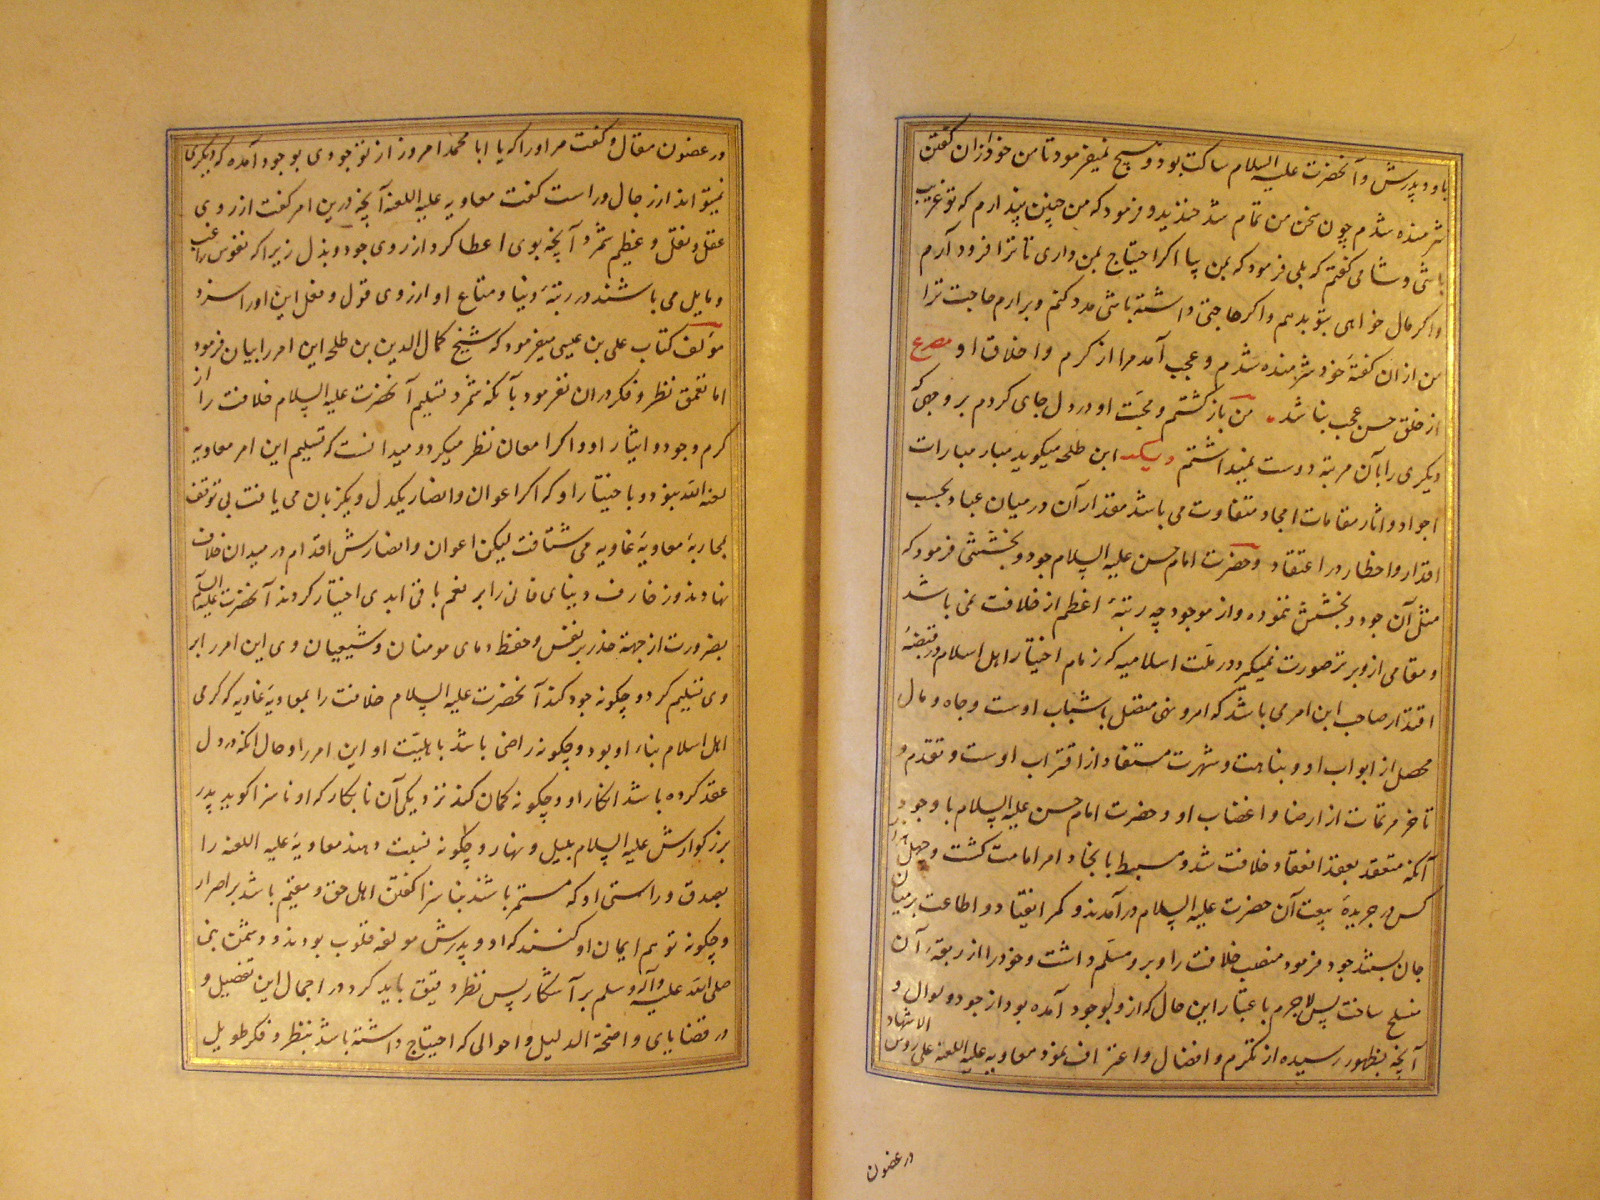 با و پدرش و آنحضرت علیه السلام ساکت بود و هیچ نمیفرمود تا من خود ازان گفتن
شرمنده شدم چون سخن من تمام شد خندید و فرمود که من چنین پندارم که تو غریب
باشی و شامی گفتم که بلی فرمود که بمن بیا اگر احتیاج بمن داری تا ترا فرود آرم
و اگر مال خواهی بتو بدهم و اگر حاجتی داشته باشی مدد کنم و برارم حاجت ترا
من از ان گفتهٔ خود شرمنده شدم و عجب آمد مرا از کرم و اخلاق او مصرع
از خلق حسن عجب نباشد من باز گشتم و محبت او در دل جای کردم بر وجهی که
دیگری را بآن مرتبه دوست نمیداشتم ابن طلحه میگوید مبارات
اجواد و اثار مقامات امجاد متفاوت می باشد مقدار آن در میان عباد بحسب
اقدار و اخطار در اعتقاد و حضرت امام حسن علیه السلام جود و بخششی فرمود که
مثل آن جود و بخشش ننموده و از موجود چه رتبهٔ اعظم از خلافت نمی باشد
و مقامی ازو برتر صورت نمیگیرد در ملت اسلامیه که زمام اختیار اهل اسلام در قبضهٔ
اقتدار صاحب این امر می باشد که امر و نهی متصل باسباب اوست و جاه و مال
محصل از ابواب او و نباهت و شهرت مستفاد از اقتراب اوست و تقدم و
تاخر مرتمات از ارضا و اغضاب او و حضرت امام حسن علیه السلام با وجود
آنکه متعقد بعقد انعقاد خلافت شد و مسبط بایجاد امر امامت گشت و چهل هزار
کس در جریدهٔ بیعت آن حضرت علیه السلام درآمدند و کمر انقیاد و اطاعت بر میان
جان بستند جود فرمود منصب خلافت را و برو مسلم داشت و خود را از ربقهٔ آن
منسلخ ساخت پس لاجرم باعتبار این حال که ازو بوجود آمده بود از جود و نوال و
آنچه بظهور رسیده از تکرم و افضال و اعتراف نمود معاویه علیه اللعنه علی روس الاشهاد
در غضون
در غضون مقال و گفت مر او را که یا ابا محمد امروز از تو جودی بوجود آمده که دیگری
نمیتواند از رجال و راست گفت معاویه علیه اللعنه آنچه درین امر گفت از روی
عقل و نقل و عظیم شمرد آنچه بوی اعطا کرد از روی جود و بذل زیرا که نفوس راغب
و مایل می باشند در رتبهٔ دنیا و متاع او از روی قول و فعل این او را سزد
مؤلف کتاب علی بن عیسی میفرمود که شیخ کمال الدین بن طلحه این امر را بیان فرمود
اما تعمق نظر و فکر دران نفرمود بآنکه شمرد تسلیم آنحضرت علیه السلام خلافت را از
کرم وجود و ایثار او و اگر امعان نظر میکرد و میدانست که تسلیم این امر معاویه
لعنه الله نبود و باختیار او که اگر اعوان و انصار یکدل و یکزبان می یافت بی توقف
بمحاربهٔ معاویهٔ غاویه می شتافت لیکن اعوان و انصارش اقدام در میدان خلاف
نهادند و زخارف دنیای فانی را بر نعم باقی ابدی اختیار کردند آنحضرت علیه السلام
بضرورت از جهة حذر بر نفس و حفظ دمای مومنان و شیعیان وی این امر را بر
وی تسلیم کرد و چگونه جود کند آنحضرت علیه السلام خلافت را بمعاویهٔ غاویه که گرمی
اهل اسلام بناء او بود و چگونه راضی باشد باهلیت او این امر را و حال آنکه در دل
عقد کرده باشد انکار او و چگونه گمان کند نزدیکی آن نابکار که او ناسزا گوید پدر
بزرگوارش علیه السلام بلیل و نهار و چگونه نسبت دهند معاویهٔ علیه اللعنه را
بصدق و راستی او که مستمر باشند بناسزا گفتن اهل حق و مقیم باشد بر اصرار
و چگونه توهم ایمان او کنند که او و پدرش مولفه قلوب بودند و دشمن نبی
صلی الله علیه وآله وسلم بر آشکار پس نظر دقیق باید کرد در اجمال این تفصیل و
در قضایای واضحة الدلیل و احوالی که احتیاج داشته باشد بنظر و فکر طویل